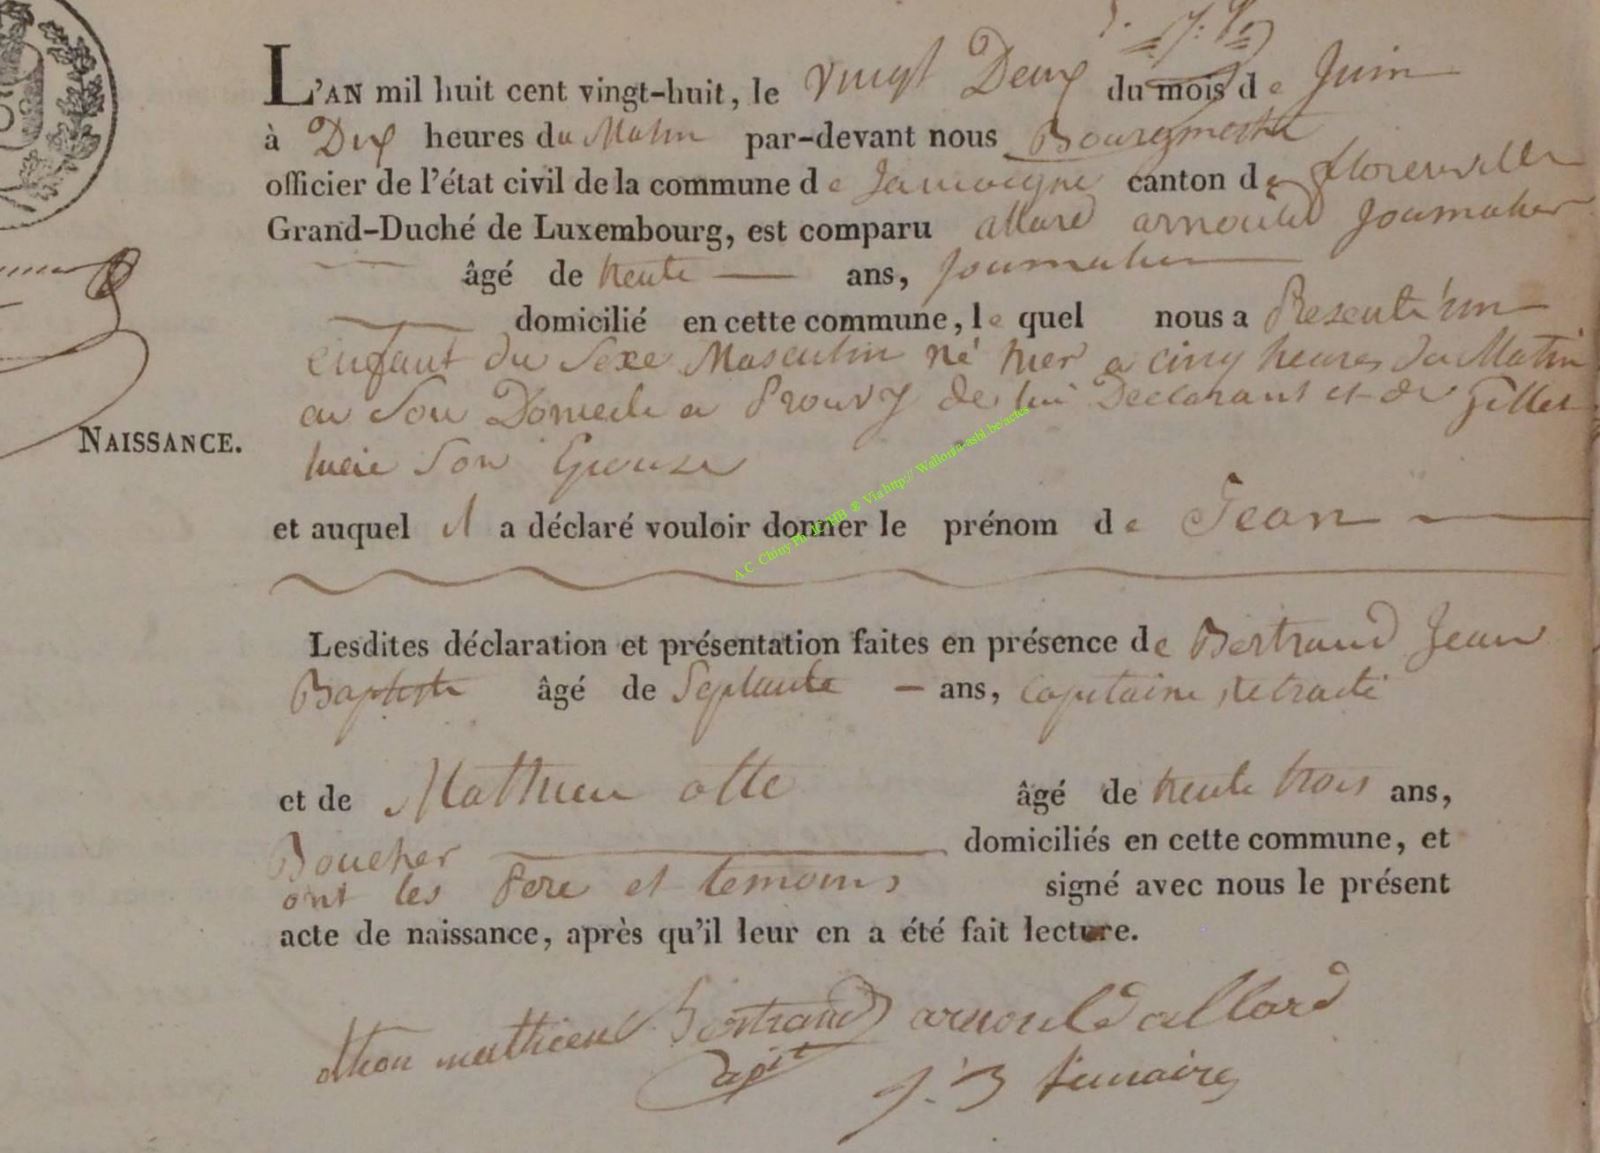 L'AN mil huit cent vingt-huit, le vingt Deux du mois de Juin
à Dix heures du Matin par-devant nous Bourgmestre
officier de l'état civil de la commune de Jamoigne canton de florenville
Grand-Duché de Luxembourg, est comparu allard arnould Journalier
âgé de trente ans, Journalier
domicilié en cette commune, le quel nous a Presenté un
enfant du Sexe Masculin né hier a cinq heures du Matin
en Son Domicile a Prouvy de lui Declarant et de Gillet
NAISSANCE.
lucie Son Epouse
et auquel il a déclaré vouloir donner le prénom de Jean
A C Chiny Ph JC HB ® Via http://Wallonia-asbl.be/actes
Lesdites déclaration et présentation faites en présence de Bertrand Jean
Baptiste âgé de Septante ans, capitaine retraité
et de Mathieu otte âgé de trente trois ans,
Boucher domiciliés en cette commune, et
ont les Pere et temoins signé avec nous le présent
acte de naissance, après qu'il leur en a été fait lecture.
mathieu Bertrand arnould allard
Capit